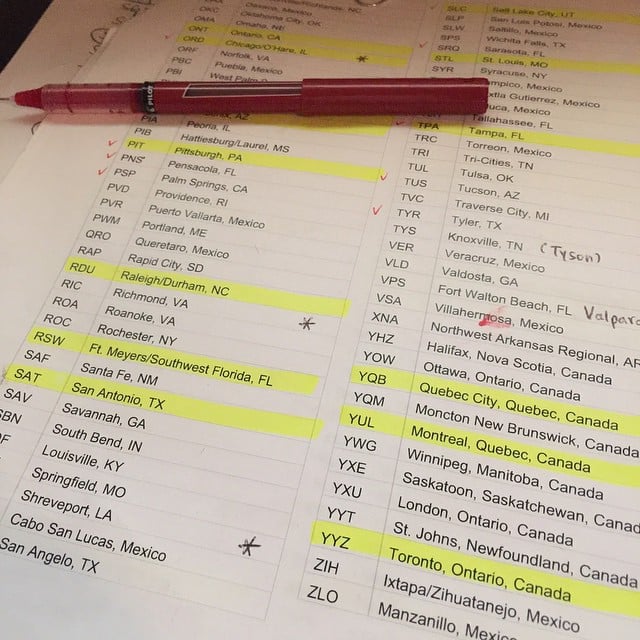 OKC Oklahoma City, OK
OMA Omaha, NE
ONT Ontario, CA
ORD Chicago/O'Hare, IL
ORF Norfolk, VA *
PBC Puebla, Mexico
PBI West Palm
PILOT
AZ
PIA Peoria, IL
PIB Hattiesburg/Laurel, MS
PIT Pittsburgh, PA
PNS Pensacola, FL
PSP Palm Springs, CA
PVD Providence, RI
PVR Puerto Vallarta, Mexico
PWM Portland, ME
QRO Queretaro, Mexico
RAP Rapid City, SD
RDU Raleigh/Durham, NC
RIC Richmond, VA
ROA Roanoke, VA *
ROC Rochester, NY
RSW Ft. Meyers/Southwest Florida, FL
SAF Santa Fe, NM
SAT San Antonio, TX
SAV Savannah, GA
SBN South Bend, IN
DF Louisville, KY
Springfield, MO
Shreveport, LA
Cabo San Lucas, Mexico *
San Angelo, TX
SLC Salt Lake City, UT
SLP San Luis Potosi, Mexico
SLW Saltillo, Mexico
SPS Wichita Falls, TX
SRQ Sarasota, FL
STL St. Louis, MO
SYR Syracuse, NY
ampico, Mexico
uxtla Gutierrez, Mexico
luca, Mexico
Tallahassee, FL
TPA Tampa, FL
TRC Torreon, Mexico
TRI Tri-Cities, TN
TUL Tulsa, OK
TUS Tucson, AZ
TVC Traverse City, MI
TYR Tyler, TX
TYS Knoxville, TN (Tyson)
VER Veracruz, Mexico
VLD Valdosta, GA
VPS Fort Walton Beach, FL Valpara
VSA Villahermosa, Mexico
XNA Northwest Arkansas Regional, AR
YHZ Halifax, Nova Scotia, Canada
YOW Ottawa, Ontario, Canada
YQB Quebec City, Quebec, Canada
YQM Moncton New Brunswick, Canada
YUL Montreal, Quebec, Canada
YWG Winnipeg, Manitoba, Canada
YXE Saskatoon, Saskatchewan, Canad
YXU London, Ontario, Canada
YYT St. Johns, Newfoundland, Canada
YYZ Toronto, Ontario, Canada
ZIH Ixtapa/Zihuatanejo, Mexico
ZLO Manzanillo, Mexico